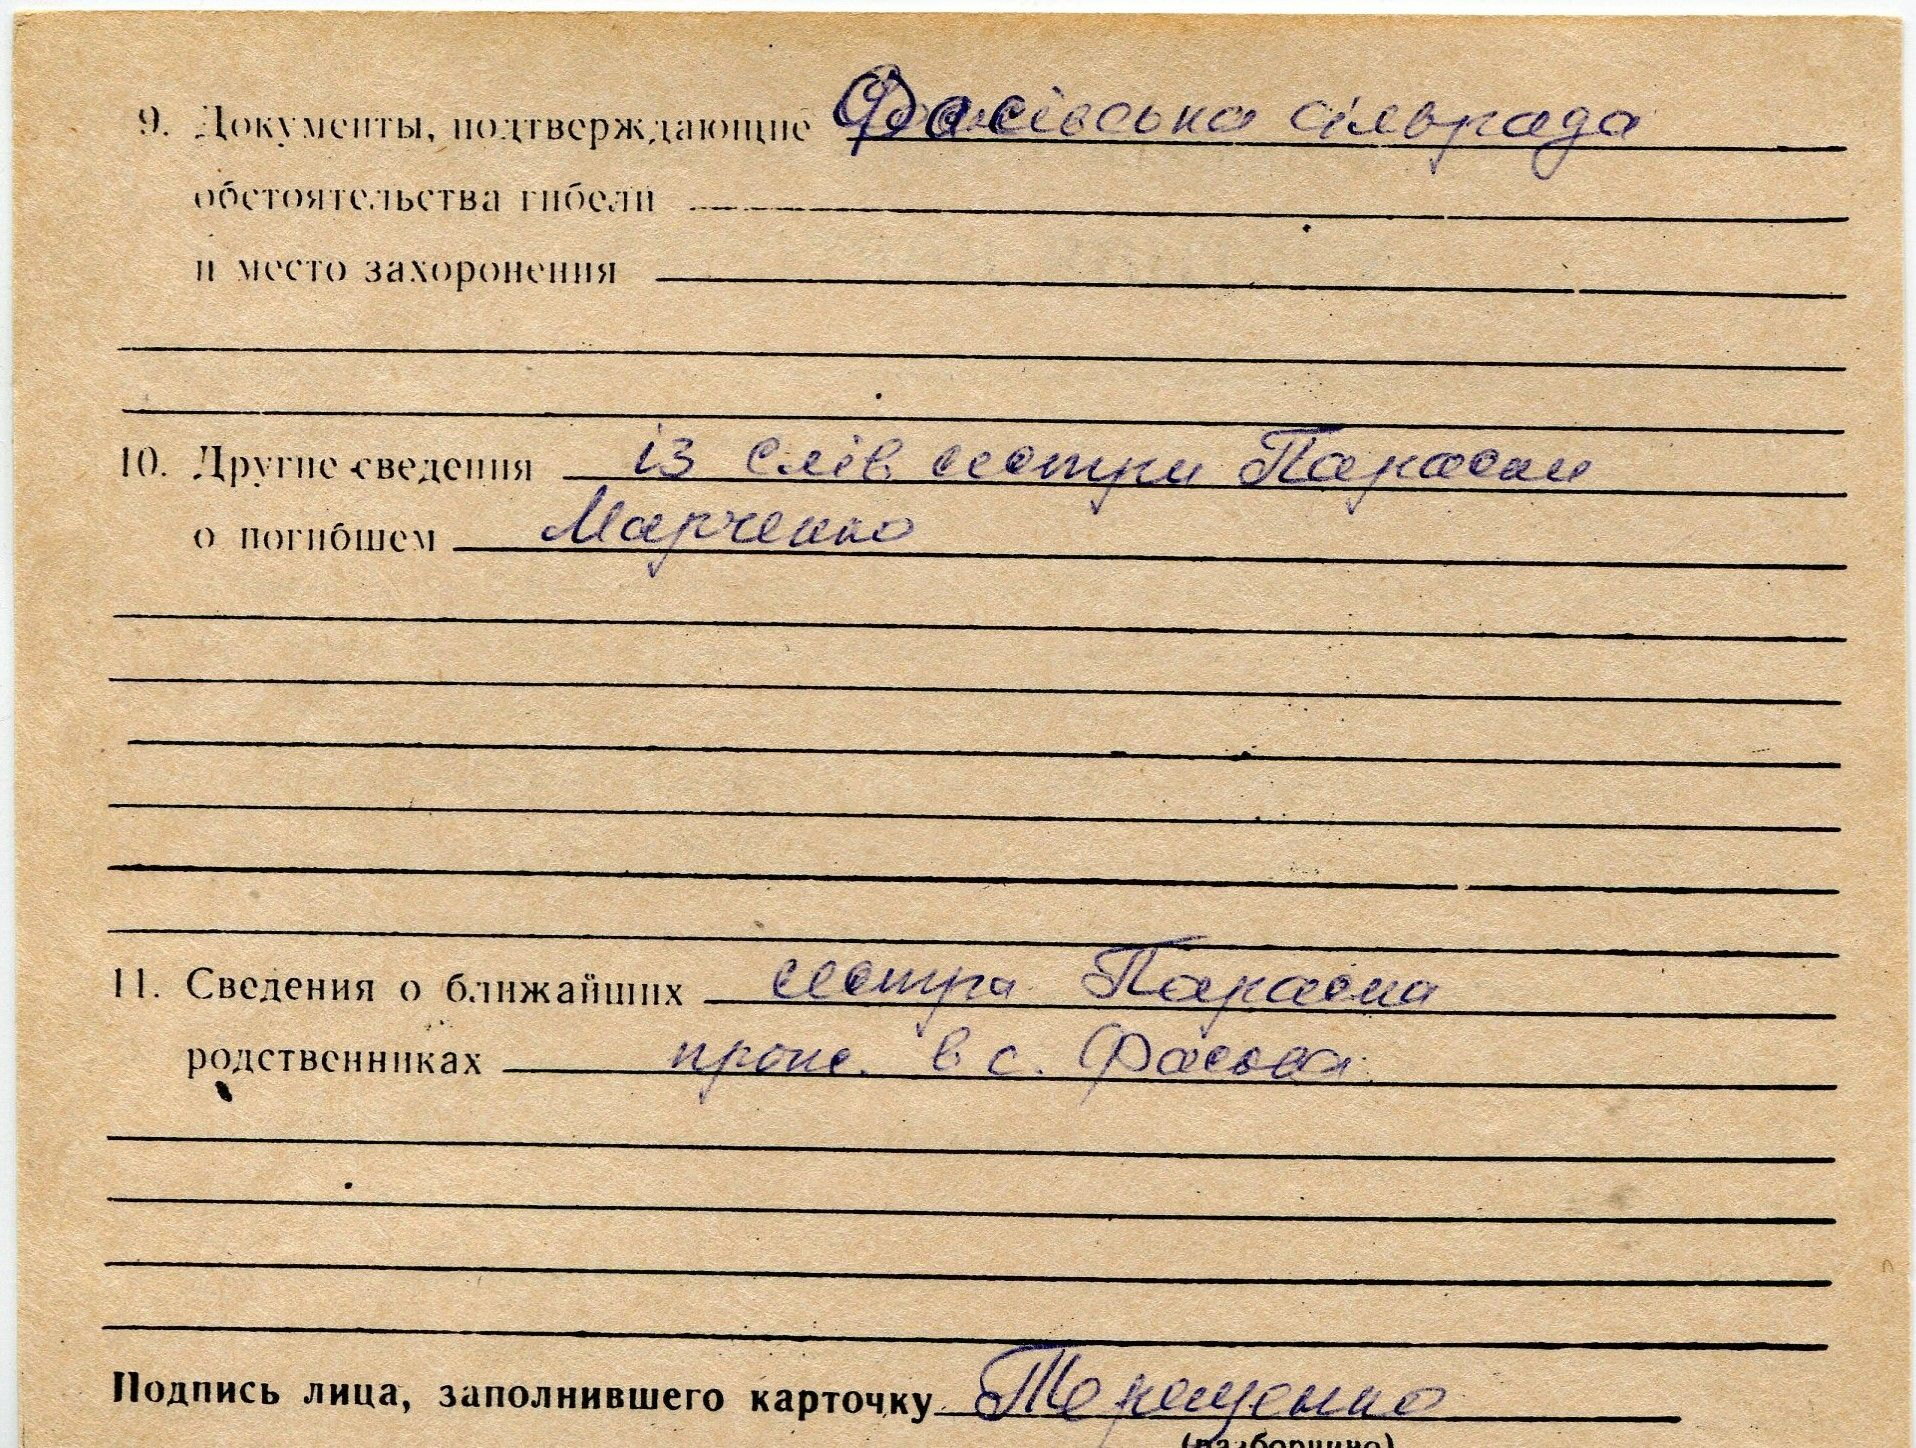 9. Документы, подтверждающие Фасівська сільрада
обстоятельства гибели
и место захоронения
10. Другие сведения із слів сестри Параски
о погибшем Марченко
11. Сведения о ближайших сестра Параска
родственниках прож. в с. Фасова
Подпись лица, заполнившего карточку Терещенко
(разборчиво)